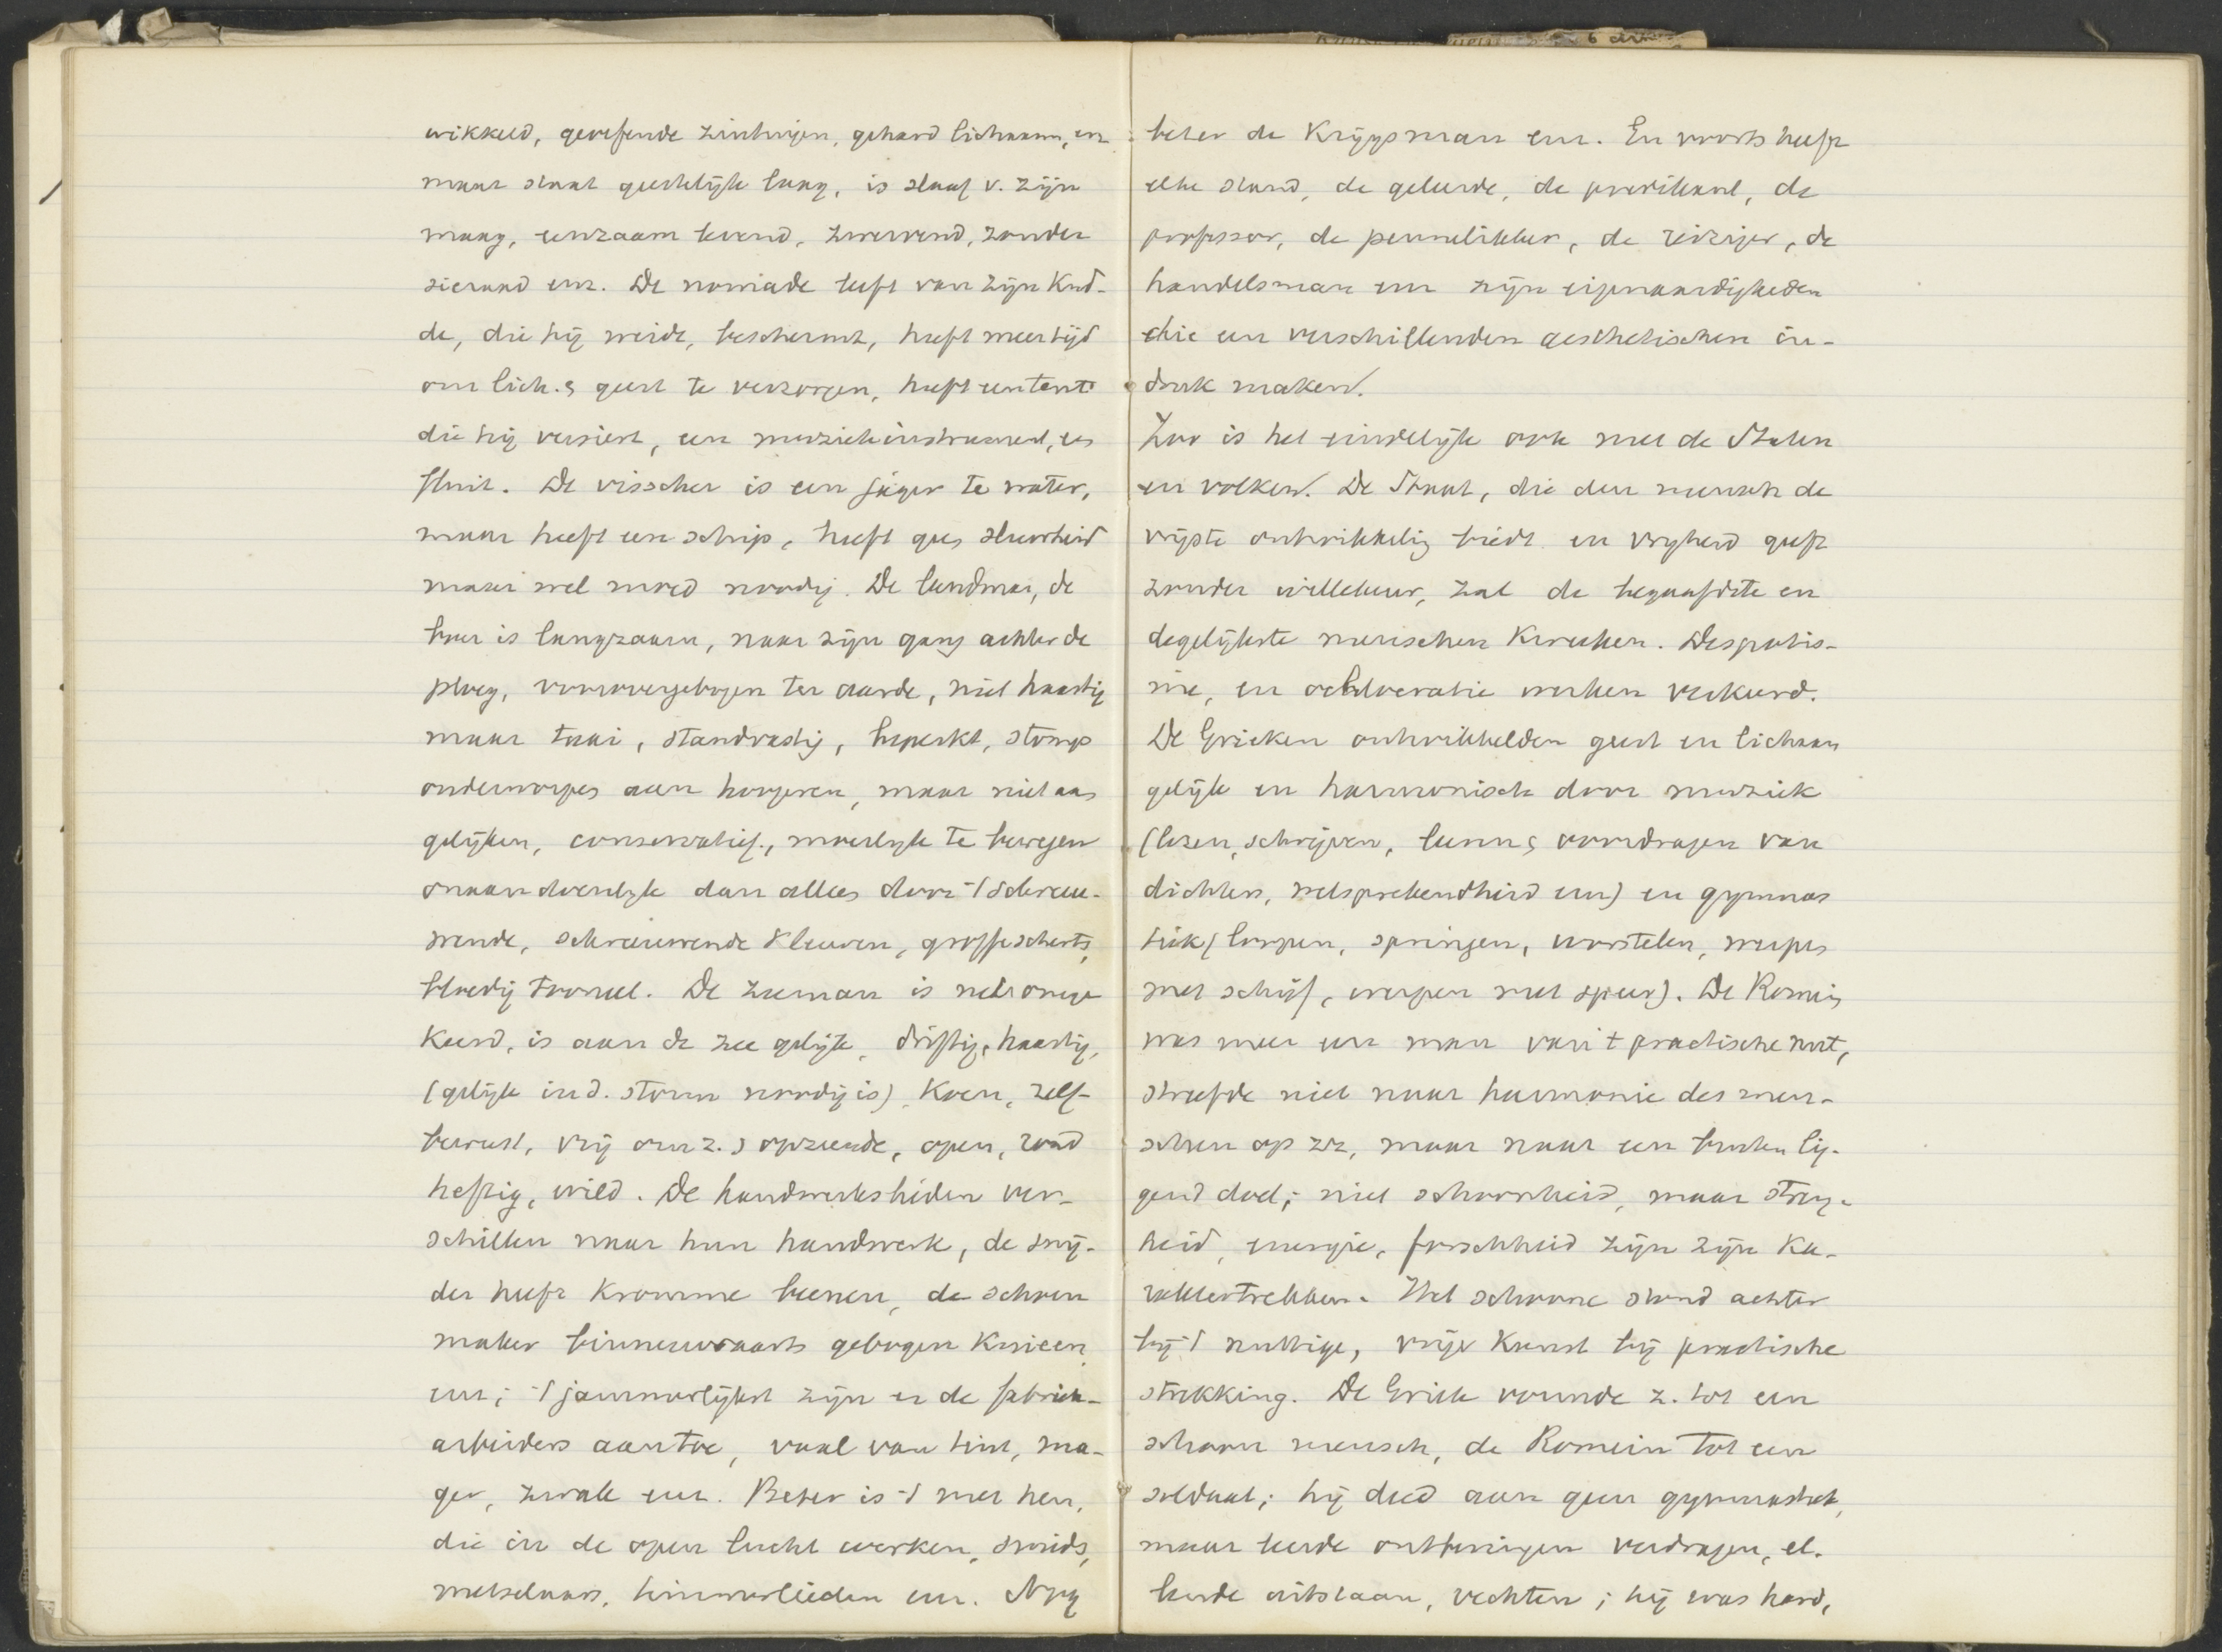 wikkeld, geoefende zintuigen, gehard lichaam, en
maar staat geestelijk laag, is slaaf v. zijn
maag, eenzaam levend, zwervend, zonder
sieraad enz. De nomade leeft van zijn kud-
de, die hij weidt, beschermt, heeft meer tijd
om lich. & geest te verzorgen, heeft een tent
die hij versiert, een muziekinstrument, een
fluit. De visscher is een jager te water,
maar heeft een schip, heeft geen sluwheid
maar wel moed noodig. De landman, de
boer is langzaam, naar zijn gang achter de
ploeg, voorovergebogen ter aarde, niet haastig
maar taai, standvastig, beperkt, stomp
onderworpen aan hoogeren, maar niet aan
gelijken, conservatief, moeilyk te bewegen
onaandoenlyk dan alles door 't schreeu-
wende, schreeuwende kleuren, groffe scherts,
bloedig tooneel. De zeeman is net omge-
keerd, is aan de zee gelijk, driftig, haastig,
(gelijk in d. storm noodig is), koen, zelf-
bewust, vrij om z. opziende, open, rond
heftig, wild. De handwerkslieden ver-
schillen naar hun handwerk, de snij-
der heeft kromme beenen, de schoen
maker binnenwaarts gebogen knieen
enz; 't jammerlijkst zijn er de fabriek-
arbeiders aan toe, vaal van tint, ma-
ger, zwak enz. Beter is 't met hen,
die in de open lucht werken, smids,
metselaars, timmerlieden enz. Nog
beter de Krijgsman enz. En voorts heeft
elke stand, de geleerde, de predikant, de
professor, de pennelikker, de reiziger, de
handelsman enz zijn eigenaardigheden
die een verschillenden aesthetischen in-
druk maken.
Zoo is het eindelijk ook met de Staten
en volken. De Staat, die den mensch de
vrijste ontwikkelig biedt en vryheid geeft
zonder willekeur, zal de begaafdste en
degelijkste menschen kweeken. Despotis-
me, en ochlocratie werken verkeerd.
De Grieken ontwikkelden geest en lichaam
gelijk en harmonisch door muziek
(lezen, schrijven, leeren & voordragen van
dichters, welsprekendheid enz) en gymnas
tiek (loopen, springen, worstelen, werpen
met schijf, werpen met speer). De Romein
was meer een man van 't practische nut,
streefde niet naar harmonie des men-
schen op zz, maar naar een buiten lig-
gend doel; niet schoonheid, maar streng-
heid, energie, forschheid zijn zijn ka-
raktertrekken. Het schoone stond achter
bij 't nuttige, vrije Kunst bij practische
strekking. De Griek vormde z. tot een
schoon mensch, de Romein tot een
soldaat; hij deed aan geen gymnastiek,
maar leerde ontberingen verdragen, el-
lende uitstaan, vechten; hij was hard,